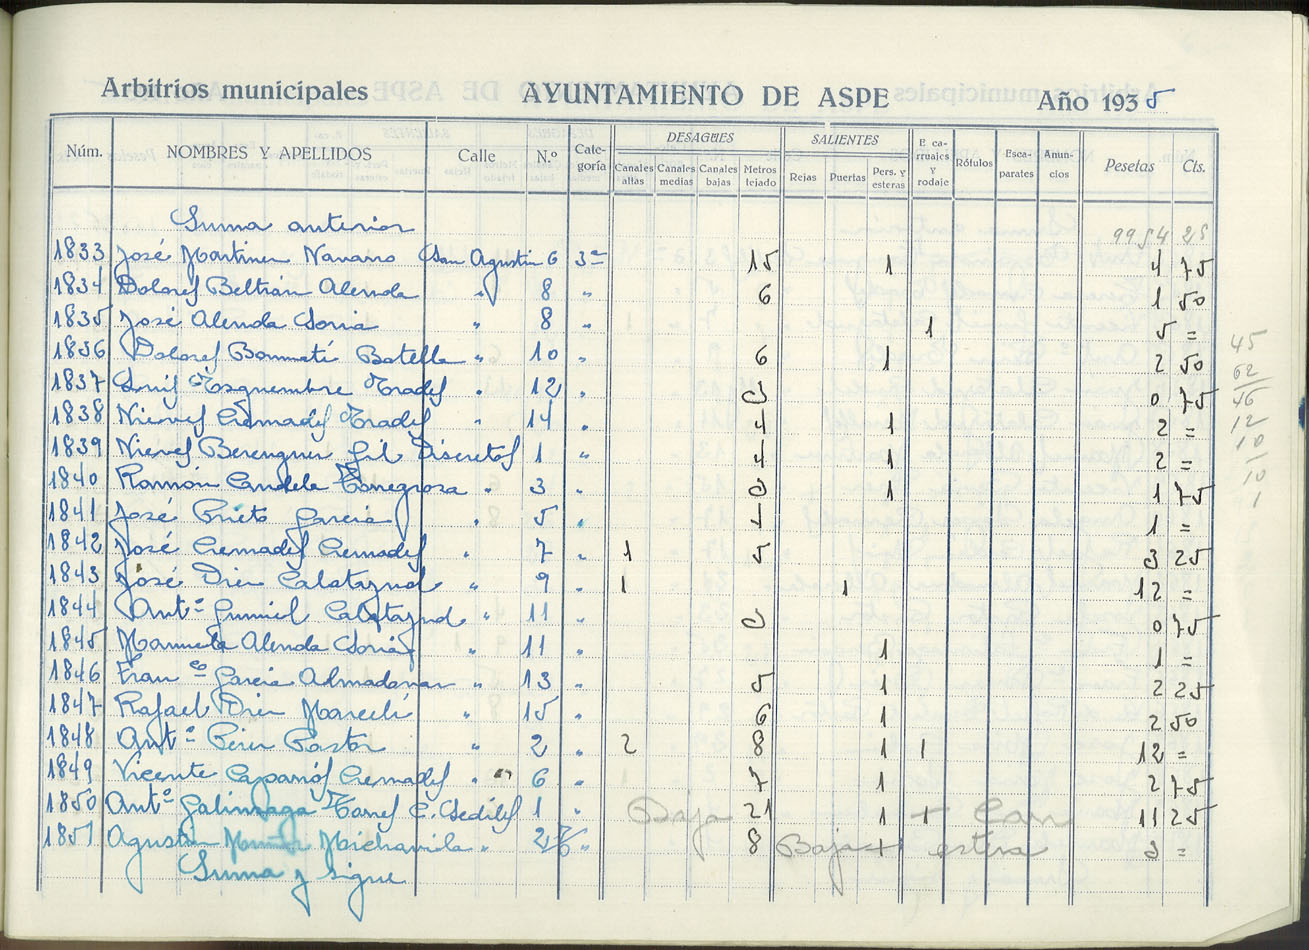 Arbitrios municipales AYUNTAMIENTO DE ASPE Año 1935
DESAGÜES SALIENTES
Núm. NOMBRES Y APELLIDOS Calle N.º Categoría Canales altas Canales medias Canales bajas Metros tejado Rejas Puertas Pers. y esteras E carruajes y rodaje Rótulos Escaparates Anuncios Pesetas Cts.
Suma anterior 9954 25
1833 José Martinez Navarro San Agustin 6 3ª 15 1 4 75
1834 Dolores Beltrán Alenda " 8 " 6 1 50
1835 José Alenda Soria " 8 " 1 5 =
1836 Dolores Bonmatí Botella " 10 " 6 1 2 50
1837 Luis Esquembre Prades " 12 " 3 0 75
1838 Nieves Cremadés Prades " 14 " 4 1 2 =
1839 Nieves Berenguer Gil Discretos 1 " 4 1 2 =
1840 Ramón Candela Torregrosa " 3 " 3 1 1 75
1841 José Prieto Garcia " 5 " 4 1 =
1842 José Cremades Cremades " 7 " 1 5 3 25
1843 José Diez Calatayud " 9 " 1 1 12 =
1844 Antº Gumiel Calatayud " 11 " 3 0 75
1845 Manuela Alenda Soria " 11 " 1 1 =
1846 Franco Garcia Almadanar " 13 " 5 1 2 25
1847 Rafael Diez Marcelí " 15 " 6 1 2 50
1848 Antº Pérez Pastor " 2 " 2 8 1 1 12 =
1849 Vicente Caparrós Cremades " 6 " 7 1 2 75
1850 Antº Galinzaga Torres C. Sediles 1 " Baja 21 1 + Can 11 25
1851 Agustin Muñoz Michavila " 2 " 8 Baja + estera 3 =
Suma y sigue
45
62
46
12
10
10
1